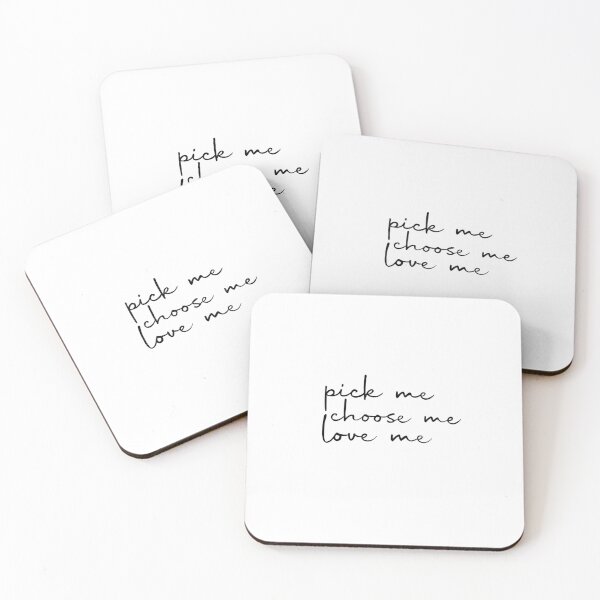 pick me
me
e
pick me
choose me
love me
pick me
choose me
love me
pick me
choose me
love me